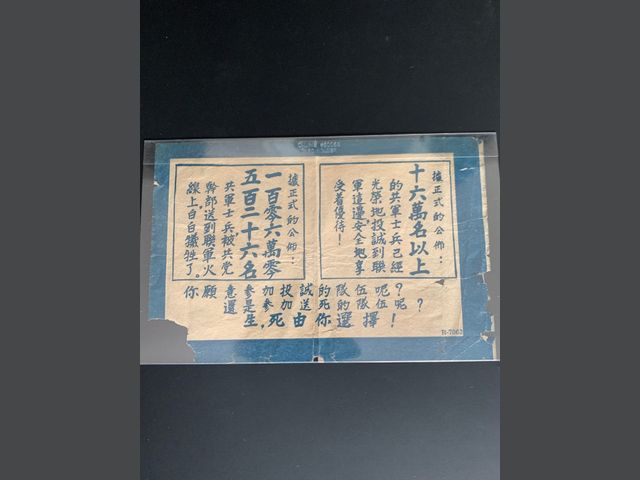 據正式的公佈：
十六萬名以上
的共軍士兵已經
光榮地投誠到聯
軍這邊，安全地享
受着優待！
據正式的公佈：
一百零六萬零
五百二十六名
共軍士兵被共黨
幹部送到聯軍火
線上，白白犧牲了。
你願意參加投誠的隊伍呢？
還是參加送死的隊伍呢？
生，死由你選擇！